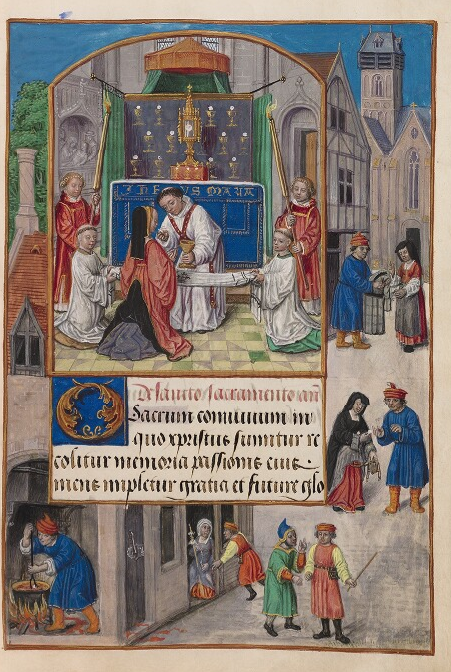 MARIA
De sancto sacramento añ
Sacrum conuiuium in
quo xpristus sumitur re
colitur memoria passionis eius
mens impletur gratia et future glo